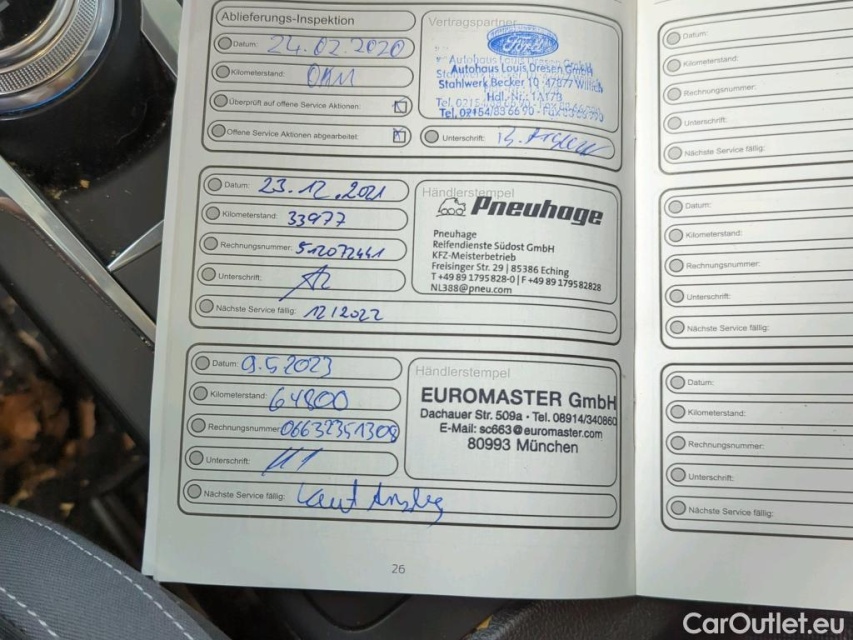 Ablieferungs-Inspektion
Datum: 24.02.2020
Kilometerstand: 0KM
Überprüft auf offene Service Aktionen:
Offene Service Aktionen abgearbeitet:
Vertragspartner
Ford
Autohaus Louis Dresen GmbH
Stahlwerk Becker 10 · 47877 Willich
Hdl. Nr.: 1A173
Tel. 02154/83 66 90 - Fax
Unterschrift:
Datum: 23.12.2021
Kilometerstand: 33977
Rechnungsnummer: 512072441
Unterschrift:
Nächste Service fällig: 12/2022
Händlerstempel
Pneuhage
Pneuhage
Reifendienste Südost GmbH
KFZ-Meisterbetrieb
Freisinger Str. 29 | 85386 Eching
T +49 89 1795828-0 | F +49 89 179582828
NL388@pneu.com
Datum: 9.5.2023
Kilometerstand: 64800
Rechnungsnummer: 06632351308
Unterschrift:
Nächste Service fällig: Laut
Händlerstempel
EUROMASTER GmbH
Dachauer Str. 509a · Tel. 08914/340860
E-Mail: sc663@euromaster.com
80993 München
26
Datum:
Kilometerstand:
Rechnungsnummer:
Unterschrift:
Nächste Service fällig:
Datum:
Kilometerstand:
Rechnungsnummer:
Unterschrift:
Nächste Service fällig:
Datum:
Kilometerstand:
Rechnungsnummer:
Unterschrift:
Nächste Service fällig:
CarOutlet.eu